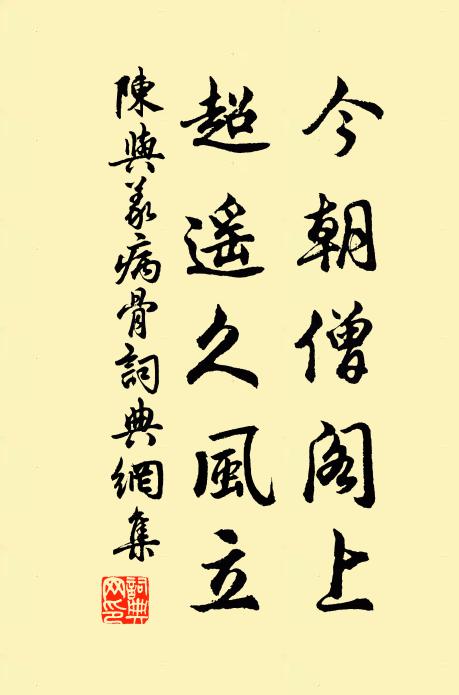 今朝僧阁上
超遥久風立
陳與義病骨詞典網集
詞典网印